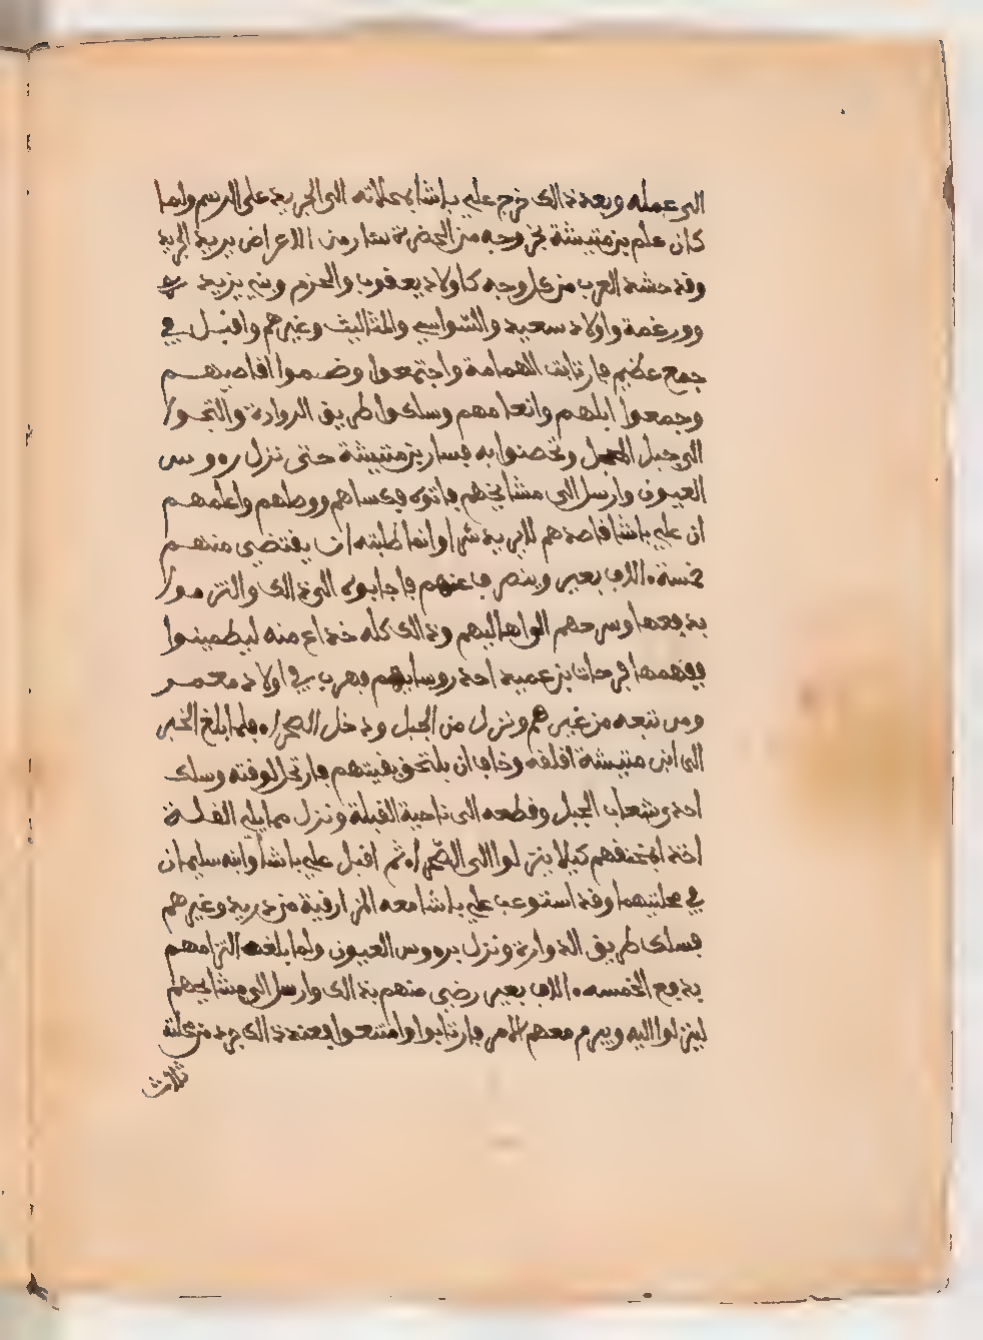 الى عمله وبعد ذالك خرج علي باشا بمحلاته الى الجريد على الرسم ولما
كان علم بن متيشة بخروجه من الحضرة سار من الاعراض يريد الجريد
وقد حشد العرب من كل وجه كاولاد يعقوب والحزم وبني يزيد
وورغمة واولاد سعيد والسواسي والمثاليث وغيرهم واقبل في
جمع عظيم فارتابت الهمامة واجتمعوا وضموا اقاصيهم
وجمعوا ابلهم وانعامهم وسلكوا طريق الروادة والتجوا
الى جبل وتحصنوا به فسار بن متيشة حتى نزل رءوس
العيون وارسل الى مشايخهم فاتوه فكساهم ووصلهم واعلمهم
ان علي باشا قاصدهم لا يريد شرا وانما طلبته ان يقتضي منهم
خمسة ءالاف بعير وينصرف عنهم فاجابوه الى ذالك والتزموا
بدفعها وسرحهم الى اهاليهم وذالك كله خداع منه ليطمينوا
ففهمها فرحات بن عميد احد روسايهم فهرب في اولاد معمر
ومن تبعه من غيرهم ونزل من الجبل ودخل الصحراء فلما بلغ الخبر
الى ابن متيشة اقلقه وخاف ان يلتحق بقيتهم فارتحل لوقته وسلك
احدى شعاب الجبل وقطعه الى ناحية القبلة ونزل مما يلي القبلة
اخذا بمخنقهم كيلا ينزلوا الى الصحراء ثم اقبل علي باشا وابنه سليمان
في محلتيهما وقد استوعب علي باشا معه المزارقية من دريد وغيرهم
فسلك طريق الدوارة ونزل برءوس العيون ولما بلغه التزامهم
بدفع الخمسه ءالاف بعير رضي منهم بذالك وارسل الى مشايخهم
لينزلوا اليه ويبرم معهم الامر فارتابوا وامتنعوا فعند ذالك جرد من محلته
ثلاث